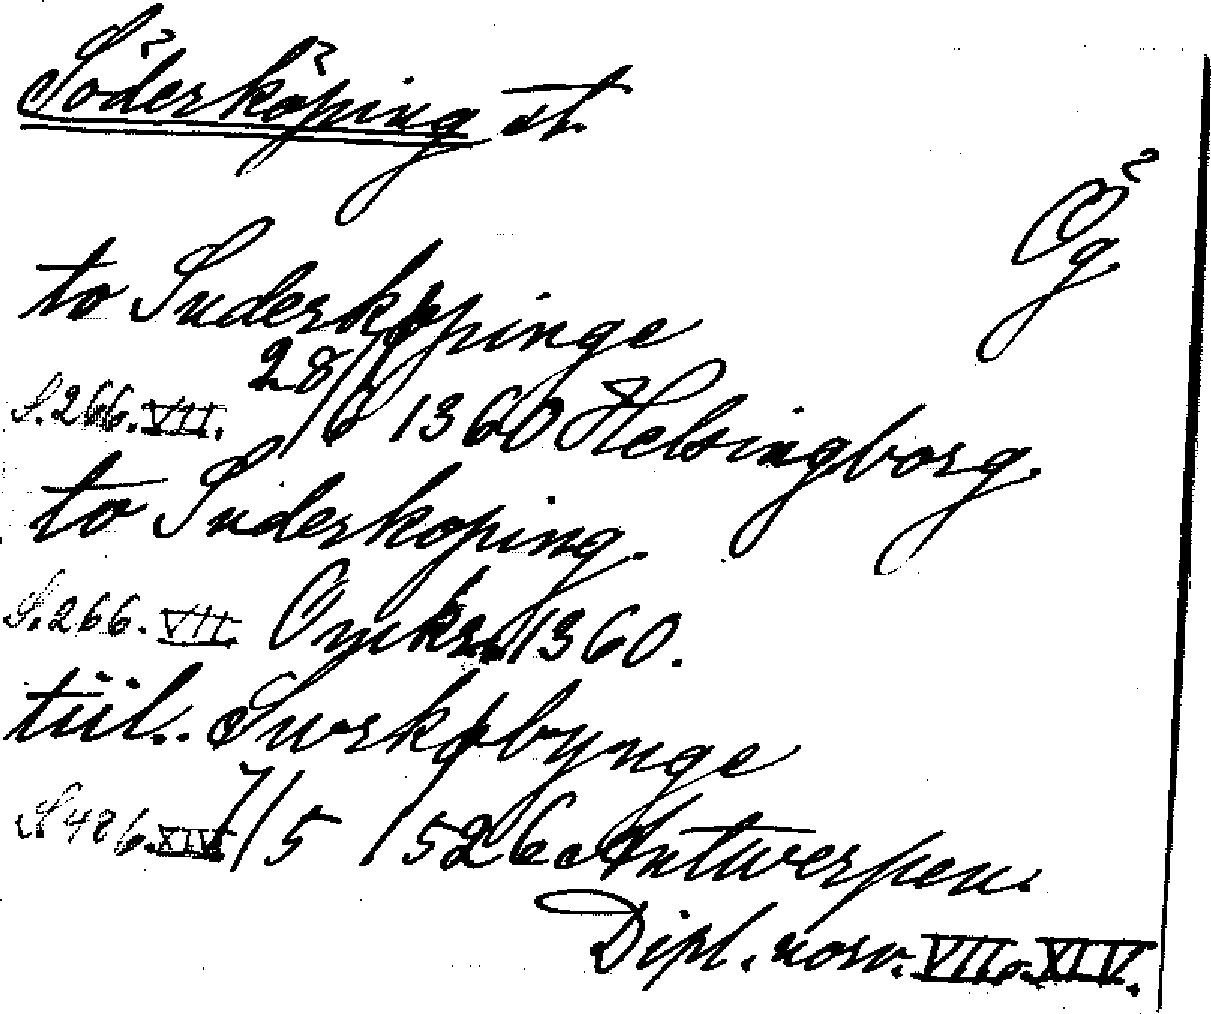 Söderköping st.
Ög.
to Suderköpinge
28/6 1360 Helsingborg.
S. 266. VII.
to Suderkoping.
S. 266. VII. 1360.
tiil. Surkøbynge
S. 426. XIV. 7/5 1526 Antwerpen.
Dipl. norv. VII. XIV.